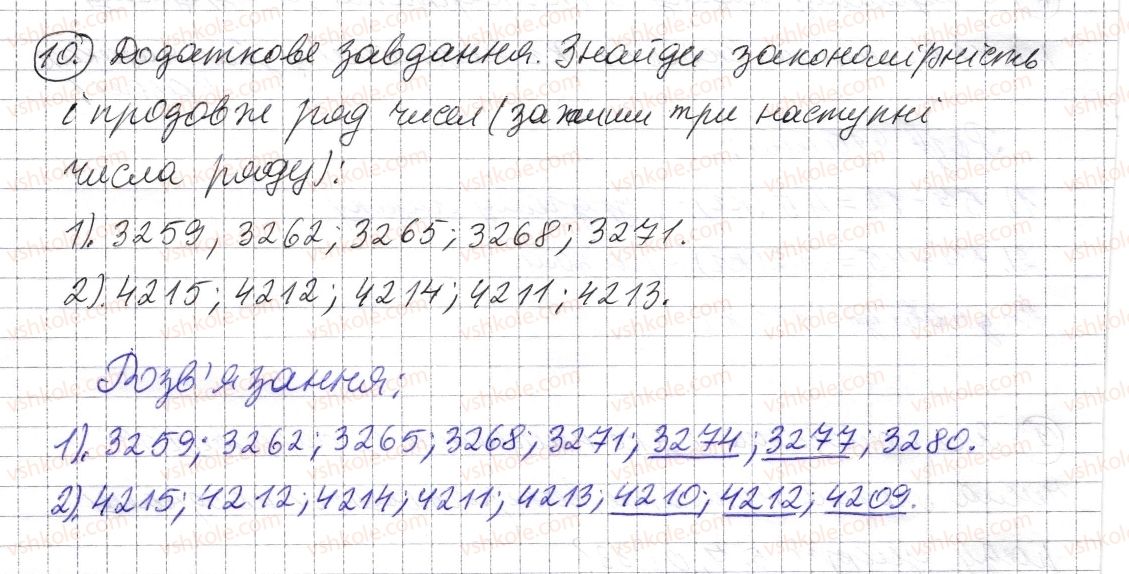 10. Додаткове завдання. Знайди закономірність
і продовж ряд чисел (запиши три наступні
числа ряду):
1). 3259, 3262; 3265; 3268; 3271.
2). 4215; 4212; 4214; 4211; 4213.
Розв'язання:
1). 3259; 3262; 3265; 3268; 3271; 3274; 3277; 3280.
2). 4215; 4212; 4214; 4211; 4213; 4210; 4212; 4209.